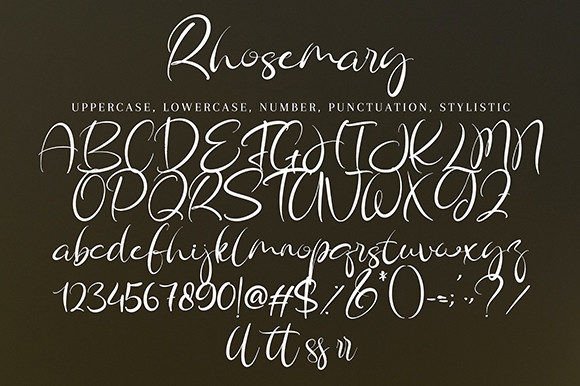 Rhosemary
UPPERCASE, LOWERCASE, NUMBER, PUNCTUATION, STYLISTIC
ABCDEFGHIJKLMN
OPQRSTUVWXYZ
abcdefghijklmnopqrstuvwxyz
1234567890!@#$%&*()-=;:,?/
tt tt ss rr